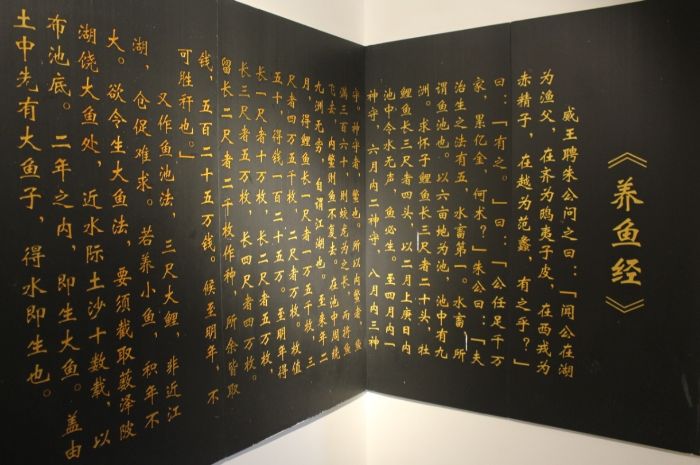 《养鱼经》
威王聘朱公问之曰：“闻公在湖
为渔父，在齐为鸱夷子皮，在西戎为
赤精子，在越为范蠡，有之乎？”
曰：“有之。”曰：“公任足千万
家，累亿金，何术？”朱公曰：“夫
治生之法有五，水畜第一。水畜，所
谓鱼池也。以六亩地为池，池中有九
洲。求怀子鲤鱼长三尺者二十头，牡
鲤鱼长三尺者四头，以二月上庚日内
池中令水无声，鱼必生。至四月内一
神守，六月内二神守，八月内三神
守，神守者，鳖也。所以内鳖者，鱼
满三百六十，则蛟龙为之长，而将鱼
飞去，内鳖则鱼不复去。在池中周绕
九洲无穷，自谓江湖也。至来年二
月，得鲤鱼长一尺者一万五千枚，三
尺者四万五千枚，二尺者万枚。枚值
五十，得钱一百二十五万。至明年得
长一尺者十万枚，长二尺者五万枚，
长三尺者五万枚，长四尺者四万枚。
留长二尺者二千枚作种，所余皆取
钱，五百二十五万钱。候至明年，不
可胜秆也。”
又作鱼池法，三尺大鲤，非近江
湖，仓促难求。若养小鱼，积年不
大。欲令生大鱼法，要须截取薮泽陂
湖饶大鱼处，近水际土沙十数载，以
布池底。二年之内，即生大鱼。盖由
土中先有大鱼子，得水即生也。